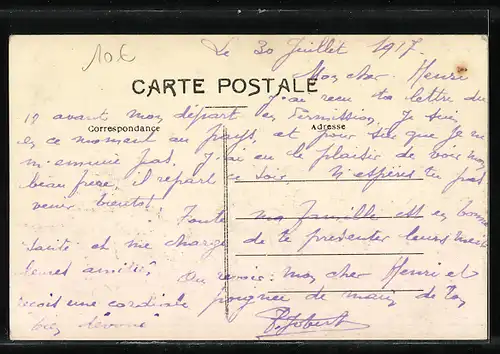 10 €
Le 30 Juillet 1917.
CARTE POSTALE
Mon cher Henri
J'ai reçu ta lettre du
12 avant mon départ en Permission, Je suis
Correspondance
Adresse
en ce moment au pays, et pour sûr que je ne
m'ennuie pas. J'ai eu le plaisir de voir mon
beau frère, il repart ce soir. N'espères tu pas
venir bientôt. Toute ma famille est en bonne
santé et me charge de te présenter leurs meil
leures amitiés. Au revoir mon cher Henri et
reçois une cordiale poignée de main de ton
bien dévoué
P. Jobert